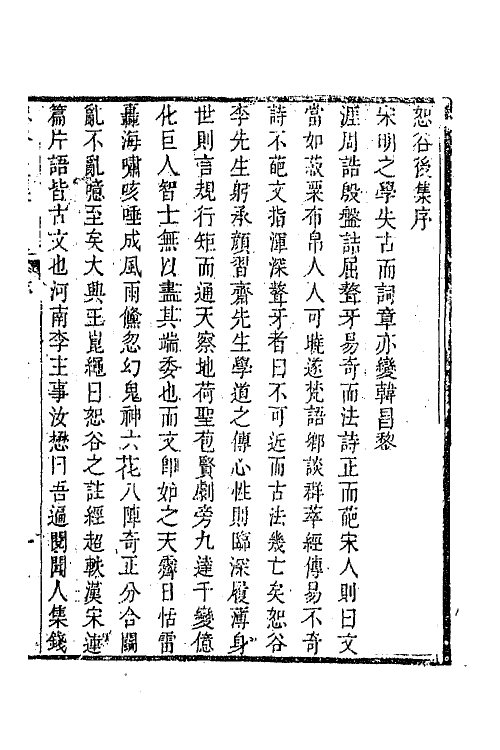 恕谷後集序
宋明之學失古而詞章亦變韓昌黎
涯周誥殷盤詰屈聱牙易奇而法詩正而葩宋人則曰文
當如菽粟布帛人人可曉遂梵語鄉談群萃經傳易不奇
詩不葩文指渾深聱牙者曰不可近而古法幾亡矣恕谷
李先生躬承顏習齋先生學道之傳心性則臨深履薄身
世則言規行矩而通天察地荷聖苞賢劇旁九達千變億
化巨人智士無以盡其端委也而文卽如之天霽日恬雷
轟海嘯咳唾成風雨儵忽幻鬼神六花八陣奇正分合鬬
亂不亂噫至矣大興王崑繩曰恕谷之註經超軼漢宋連
篇片語皆古文也河南李主事汝懋曰吾遍閱聞人集錢